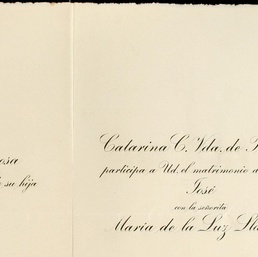 su hija
Catarina C. Vda. de
participa a Ud. el matrimonio
José
con la señorita
María de la Luz